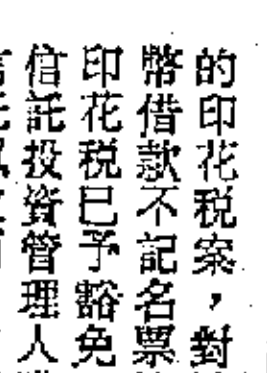 的印花税案，對
幣借款不記名票
印花税已予豁免
信託投資管理人